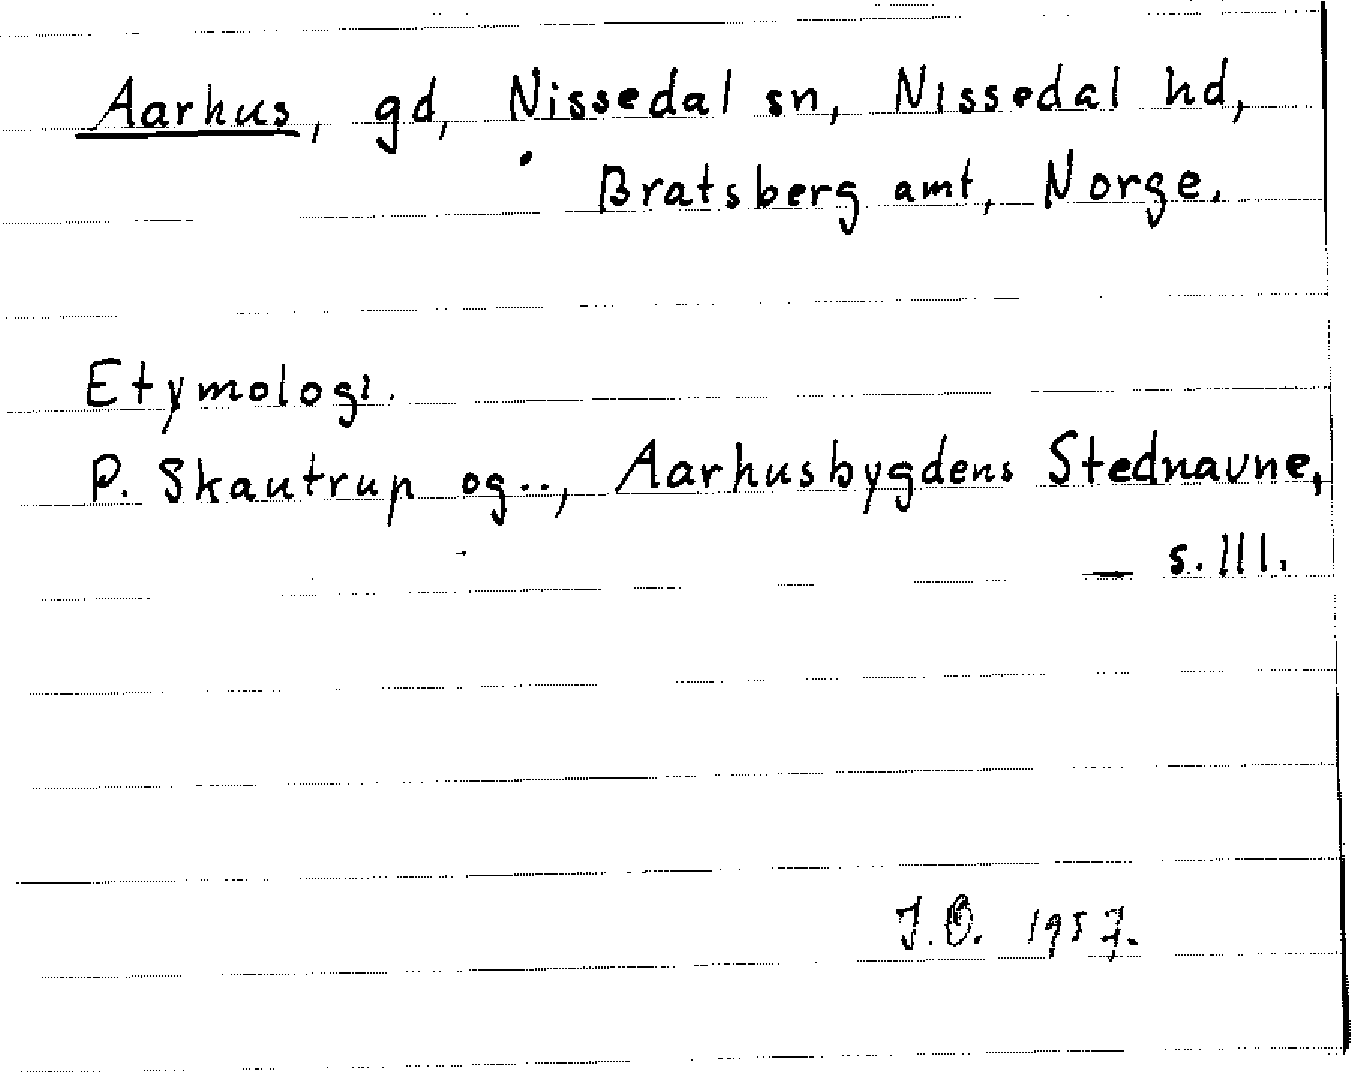 Aarhus, gd, Nissedal sn, Nissedal hd,
Bratsberg amt, Norge.
Etymologi.
P. Skautrup og.., Aarhusbygdens Stednavne,
— s. 111.
J.O. 1957.